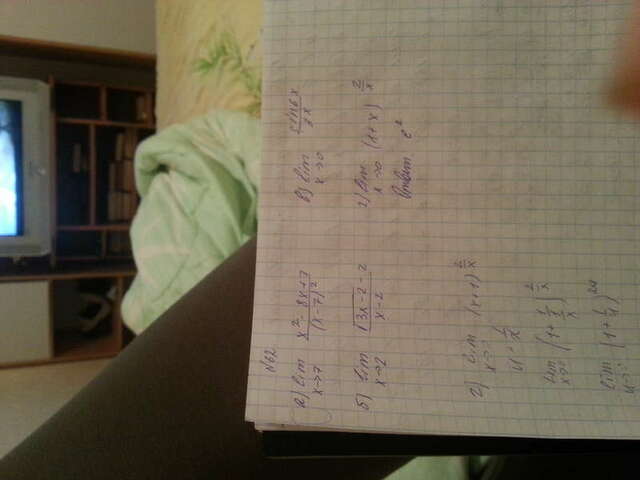 №62
а) lim x→7 (x² - 8x + 7)/(x-7)²
в) lim x→0 sin6x/3x
б) lim x→2 (√(3x-2) - 2)/(x-2)
г) lim x→0 (1+x)^(2/x)
Ответ e²
г) lim (x+1)^(2/x)
u = 1/x
lim x→0 (1 + 1/(1/x))^(2/x)
lim (1 + 1/u)^(2u)